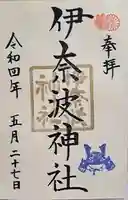 奉拝
伊奈波神社
令和四年 五月二十七日